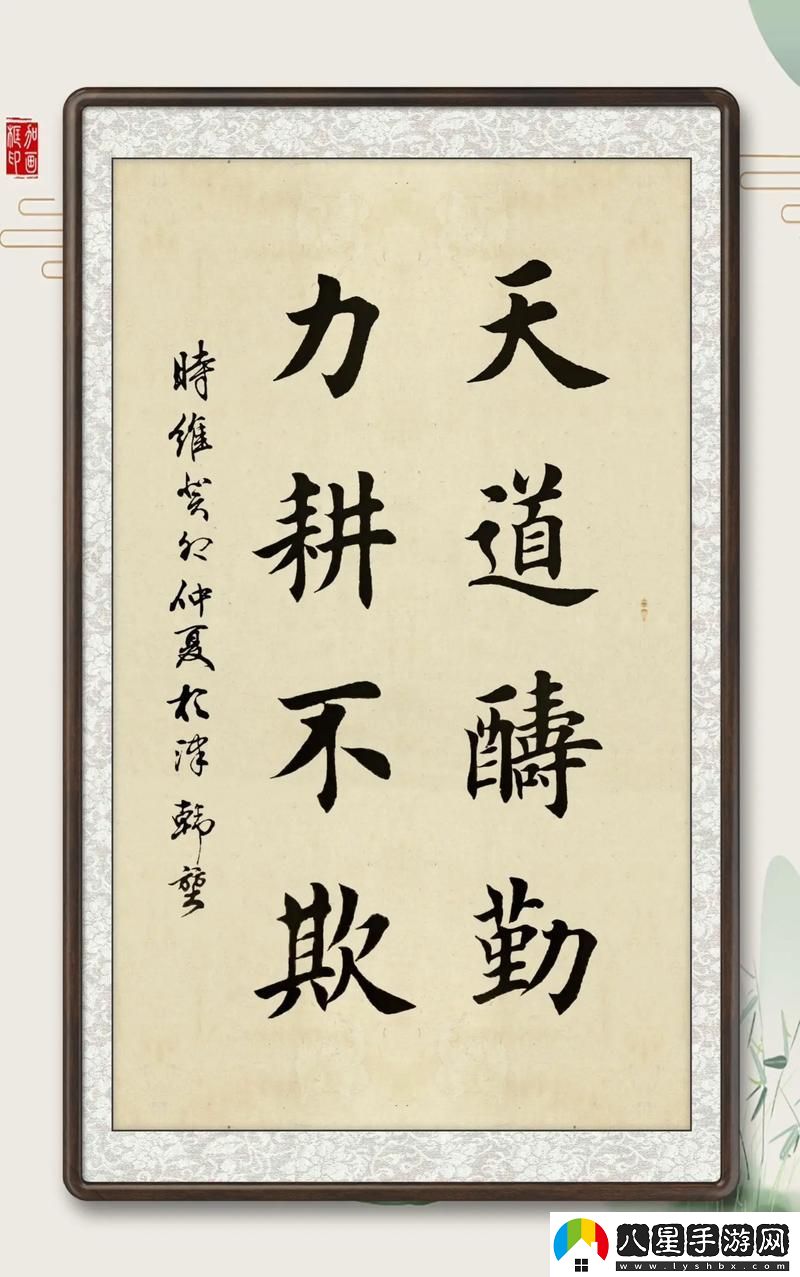 天道醻勤
力耕不欺
時維癸卯仲夏於津 韓
加画
框印
八星手游网
www.lyshbx.com